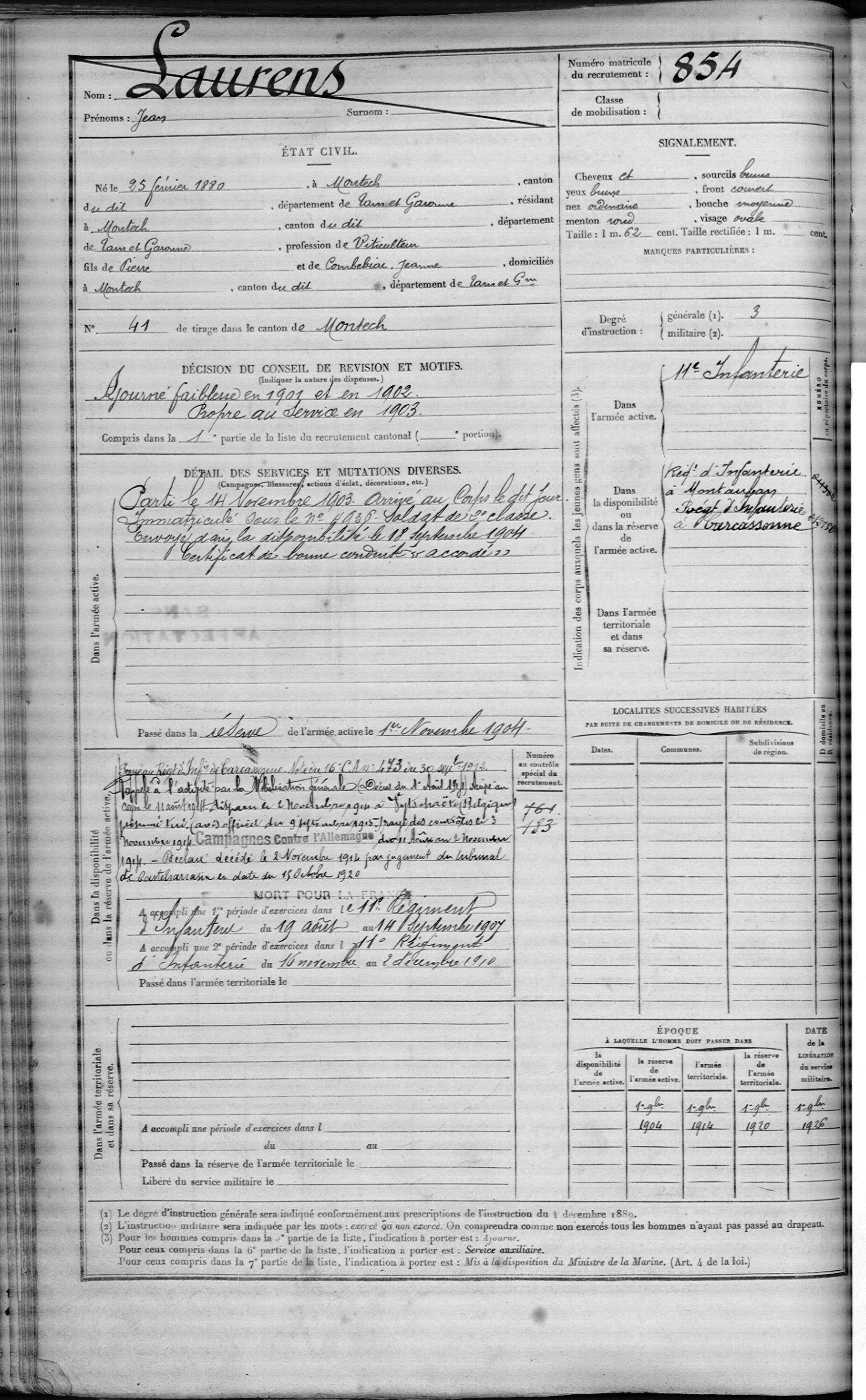 Nom : Laurens
Prénoms : Jean Surnom :
Numéro matricule
du recrutement : 854
Classe
de mobilisation :
ÉTAT CIVIL.
Né le 25 février 1880, à Montech, canton
du dit, département de Tarn et Garonne, résidant
à Montech, canton du dit, département
de Tarn et Garonne, profession de Viticulteur
fils de Pierre et de Combebiac, Jeanne, domiciliés
à Montech, canton du dit, département de Tarn et Gne
N° 41 de tirage dans le canton de Montech
SIGNALEMENT.
Cheveux et, sourcils bruns
yeux bruns, front couvert
nez ordinaire, bouche moyenne
menton rond, visage ovale
Taille : 1 m. 62 cent. Taille rectifiée : 1 m. cent.
MARQUES PARTICULIÈRES :
Degré
d'instruction :
générale (1). 3
militaire (2).
DÉCISION DU CONSEIL DE REVISION ET MOTIFS.
(Indiquer la nature des dispenses.)
Ajourné faiblesse en 1901 et en 1902.
Propre au Service en 1903.
Compris dans la 1re partie de la liste du recrutement cantonal ( e portion).
DÉTAIL DES SERVICES ET MUTATIONS DIVERSES.
(Campagnes, blessures, actions d'éclat, décorations, etc.)
Dans l'armée active.
Parti le 14 Novembre 1903. Arrivé au Corps le dit jour.
Immatriculé sous le n° Soldat de 2e classe.
Envoyé dans la disponibilité le 18 Septembre 1904.
Certificat de bonne conduite "accordé"
SANS
AFFECTATION
Passé dans la réserve de l'armée active le 1er Novembre 1904.
Indication des corps auxquels les jeunes gens sont affectés (3).
Dans
l'armée active.
11e Infanterie
Dans
la disponibilité
ou
dans la réserve
de
l'armée active.
Régt d'Infanterie
à Montauban
Régt d'Infanterie
à Carcassonne
Dans l'armée
territoriale
et dans
sa réserve.
NUMÉRO
LOCALITÉS SUCCESSIVES HABITÉES
PAR SUITE DE CHANGEMENTS DE DOMICILE OU DE RÉSIDENCE.
Dates. Communes. Subdivisions
de région.
D. domicile ou
R. résidence.
Dans la disponibilité
ou dans la réserve de l'armée active.
Numéro
au contrôle
spécial du
recrutement.
761
183
Passé au Régt d'Infie de Carcassonne. Note du 16e C.A. n° 473 du 30 Sept 1912
Rappelé à l'activité par la Mobilisation générale (Décret du 1er Août 1914) Arrivé au
corps le 11 août 1914 disparu le 2 Novembre 1914 à (Belgique)
présumé tué (avis officiel du 9 septembre 1915) rayé des contrôles le 3
Novembre 1914 Campagnes Contre l'Allemagne du 11 Août au 2 Novembre
1914. — Déclaré décédé le 2 Novembre 1914 par jugement du tribunal
de Castelsarrasin en date du 15 Octobre 1920
MORT POUR LA FRANCE
A accompli une 1re période d'exercices dans le 11e Régiment
d'Infanterie du 19 août au 14 Septembre 1907
A accompli une 2e période d'exercices dans l 11e Régiment
d'Infanterie du 16 novembre au 2 décembre 1910
Passé dans l'armée territoriale le
Dans l'armée territoriale
et dans sa réserve.
A accompli une période d'exercices dans l
du au
Passé dans la réserve de l'armée territoriale le
Libéré du service militaire le
ÉPOQUE
À LAQUELLE L'HOMME DOIT PASSER DANS
DATE
de la
LIBÉRATION
du service
militaire.
la
disponibilité
de
l'armée active.
la réserve
de
l'armée active.
l'armée
territoriale.
la réserve
de
l'armée
territoriale.
1er 9bre 1er 9bre 1er 9bre 1er 9bre
1904 1914 1920 1926
(1) Le degré d'instruction générale sera indiqué conformément aux prescriptions de l'instruction du 4 décembre 1889.
(2) L'instruction militaire sera indiquée par les mots : exercé ou non exercé. On comprendra comme non exercés tous les hommes n'ayant pas passé au drapeau.
(3) Pour les hommes compris dans la partie de la liste, l'indication à porter est : Ajourné.
Pour ceux compris dans la 6e partie de la liste, l'indication à porter est : Service auxiliaire.
Pour ceux compris dans la 7e partie de la liste, l'indication à porter est : Mis à la disposition du Ministre de la Marine. (Art. 4 de la loi.)